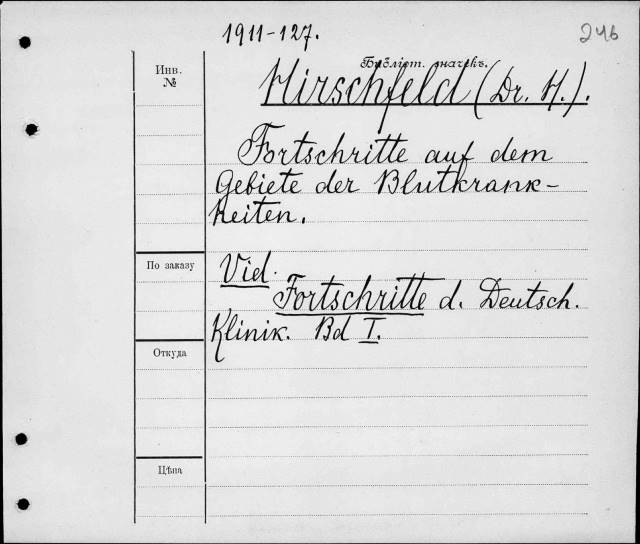 1911-127.
246
Библіот. значекъ.
Инв.
№
Hirschfeld (Dr. H.).
Fortschritte auf dem
Gebiete der Blutkrank-
heiten.
По заказу
Vid.
Fortschritte d. Deutsch.
Klinik. Bd I.
Откуда
Цѣна